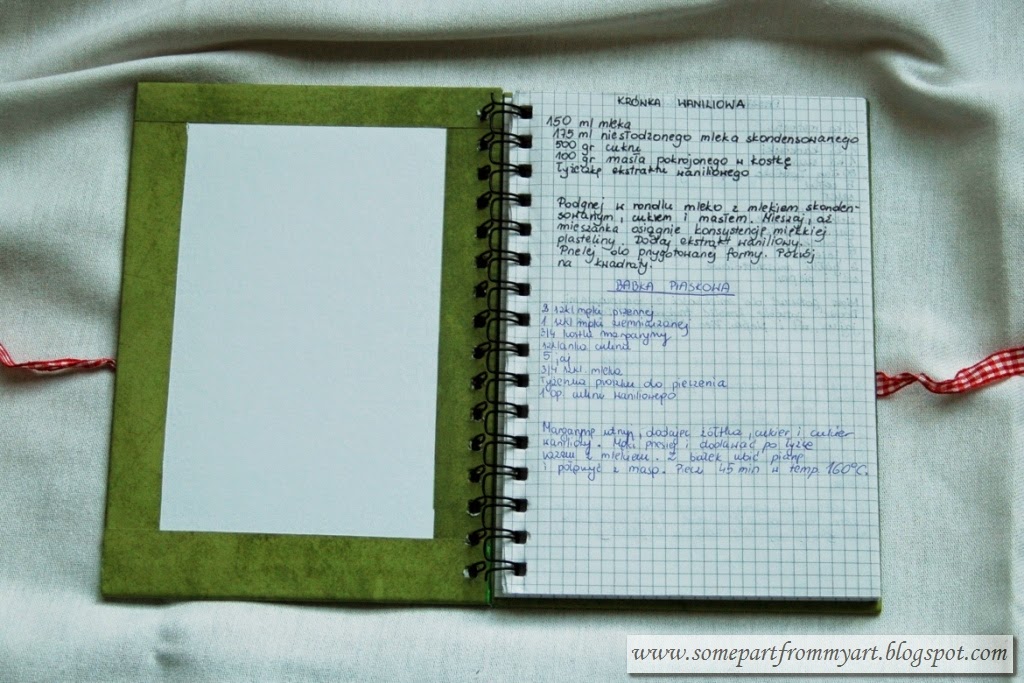 KRÓWKA WANILIOWA
150 ml mleka
175 ml niesłodzonego mleka skondensowanego
500 gr cukru
100 gr masła pokrojonego w kostkę
łyżeczkę ekstraktu waniliowego
Podgrzej w rondlu mleko z mlekiem skonden-
sowanym, cukrem i masłem. Mieszaj, aż
mieszanka osiągnie konsystencję miękkiej
plasteliny. Dodaj ekstrakt waniliowy.
Przelej do przygotowanej formy. Pokrój
na kwadraty.
BABKA PIASKOWA
szkl mąki pszennej
1 szkl mąki ziemniaczanej
3/4 kostki margaryny
szklanka cukru
5 jaj
3/4 szkl. mleka
łyżeczka proszku do pieczenia
1 op. cukru waniliowego
Margarynę utrzyj, dodając żółtka, cukier i cukier
waniliowy. Mąki przesiej i dodawać po łyżce
razem z mlekiem. Z białek ubić pianę
i połączyć z masą. Piecz 45 min w temp. 160°C.
www.somepartfrommyart.blogspot.com